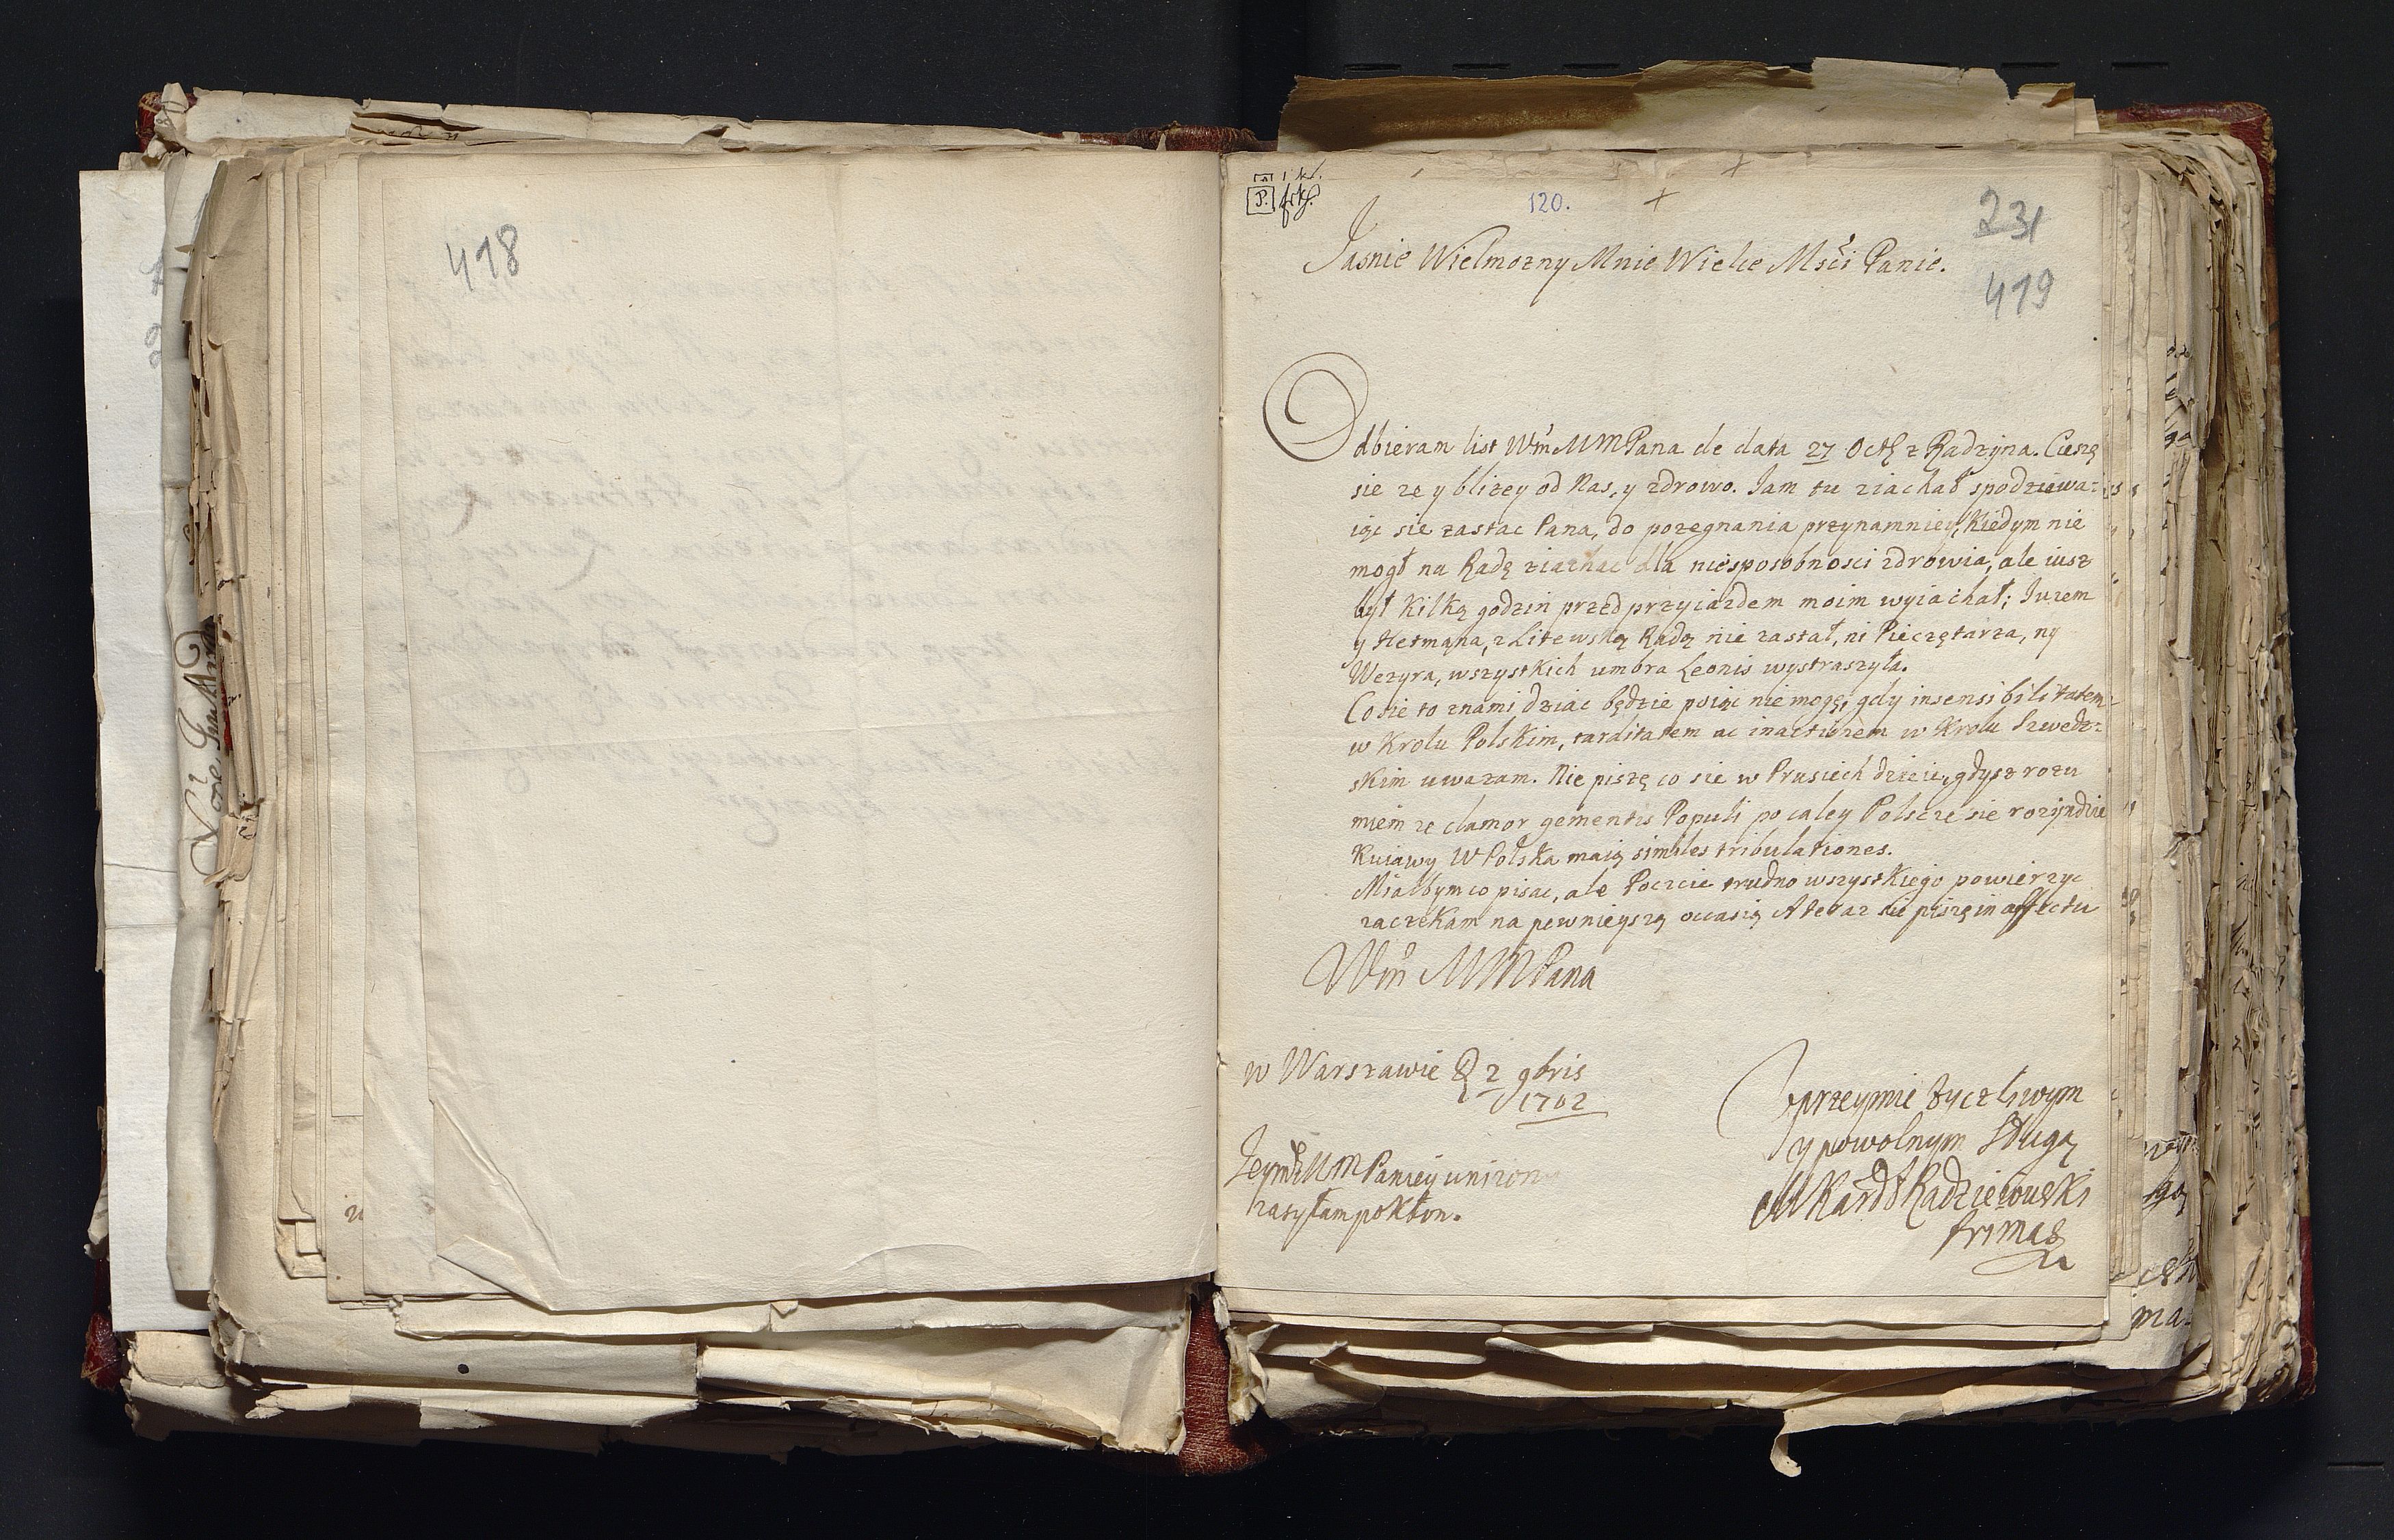 418
P.
120.
231
419
Jasnie Wielmozny Mnie Wielce Mści Panie.
Odbieram list Wm MMPana de data 27 Octb z Radzyna. Cieszę
sie ze y blizey od Nas, y zdrowo. Jam tu ziachał spodziewa:
iąc sie zastac Pana, do pozegnania przynamniey, Kiedym nie
mogł na Radę ziachac dla niesposobnosci zdrowia, ale iusz
był Kilką godzin przed przyiazdem moim wyiachał; Iuzem
y Hetmana, z Litewską Radą nie zastał, ni Pieczętarza, ny
Wezyra, wszystkich umbra Leonis wystraszyła.
Co sie to znami dziac będzie poiąc nie mogę, gdy insensibilitatem
w Krolu Polskim, tarditatem ac inactionem w Krolu Szwedz:
skim uwazam. Nie piszę co sie w Prusiech dzieie, gdysz rozu
miem ze clamor gementis Populi po caley Polscze sie rozyndzie
Kuiawy W Polska maią similes tribulationes.
Miałbym co pisac, ale Poczcie trudno wszystkiego powierzyc
zaczekam na pewnieyszą occasią A teraz sie piszę in affectu
Wm MMPana
w Warszawie D 2 9bris
1702
Uprzeymie zyczliwym
y powolnym Sługą
M Kardł Radzieiowski
Primas
Jeymśi MM Paniey unizon
zasyłam pokłon.